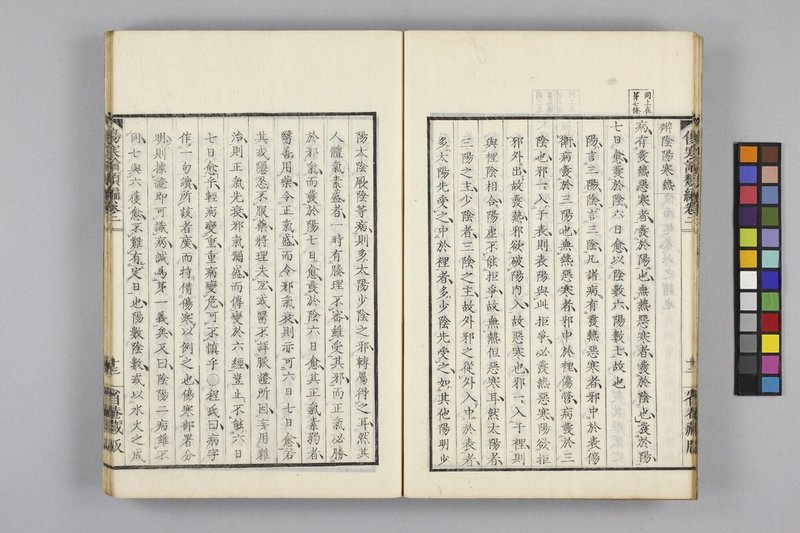 同上在
第七條
辨陰陽寒熱
病有發熱惡寒者發於陽也無熱惡寒者發於陰也發於陽
七日愈發於陰六日愈以陰數六陽數七故也
陽言三陽陰言三陰凡諸病有發熱惡寒者邪中於表傷
衛病發於三陽也無熱惡寒者邪中於裡傷營病發於三
陰也邪一入于表則表陽與此拒爭必發熱惡寒陽欲拒
邪外出故發熱邪欲破陽內入故惡寒也邪一入于裡則
與裡陰相合陽虛不能拒爭故無熱但惡寒耳然太陽者
三陽之主少陰者三陰之主故外邪之從外入中於表者
多太陽先受之中於裡者多少陰先受之如其他陽明少
傷寒論類編卷二
十二
省菴藏版
陽太陰厥陰等病則多太陽少陰之邪轉屬得之耳然其
人體氣素盛者一時有腠理不密雖受其邪而正氣必勝
於邪氣而發於陽七日愈發於陰六日愈其正氣素弱者
醫善用藥令正氣盛而令邪氣衰則亦可六日七日愈若
其或慝恙不服藥將理失宜或醫不詳脈證所因妄用雜
治則正氣先衰邪氣獨盛而傳變於六經豈止不能六日
七日愈乎輕病變重重病變危可不慎乎○程氏曰病字
作一句讀所該者廣而特借傷寒以例之也傷寒部署分
明則據證即可識病誠為第一義矣又曰陰陽二病雖不
同七與六復愈不難有定日也陽數陰數或以水火之成
傷寒論類編卷二
十三
省菴藏版